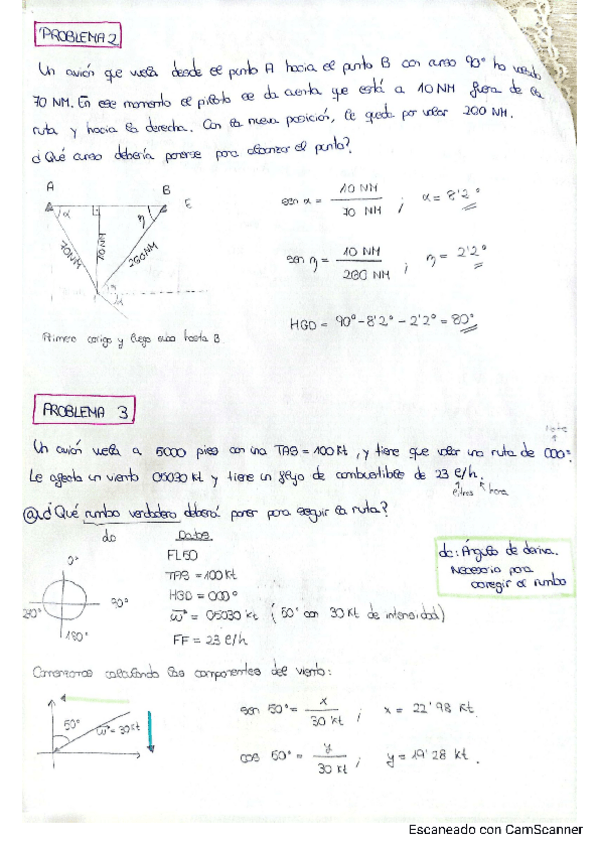 PROBLEMA 2
Un avión que vuela desde el punto A hacia el punto B con curso 90° ha volado
70 NM. En ese momento el piloto se da cuenta que está a 10 NM fuera de la
ruta y hacia la derecha. Con la nueva posición, le queda por volar 260 NM.
¿Qué curso debería ponerse para alcanzar el punto?
A
B
E
α
η
70NM
10NM
260NM
sen α = 10 NM / 70 NM ; α = 8'2°
sen η = 10 NM / 260 NM ; η = 2'2°
HGD = 90° - 8'2° - 2'2° = 80°
Primero corrijo y luego curso hasta B.
PROBLEMA 3
Un avión vuela a 5000 pies con una TAS = 100 Kt, y tiene que volar una ruta de 000°.
Le afecta un viento 05030 Kt y tiene un flujo de combustible de 23 l/h.
litros
hora
a ¿Qué rumbo verdadero deberá poner para seguir la ruta?
dc
Datos
FL50
TAS = 100 Kt
HGD = 000°
w = 05030 Kt (50° con 30 Kt de intensidad)
FF = 23 l/h
0°
90°
180°
270°
dc: Ángulo de deriva.
Necesario para
corregir el rumbo
Comenzamos calculando las componentes del viento:
50°
w = 30 Kt
sen 50° = x / 30 Kt ; x = 22'98 Kt.
cos 50° = y / 30 Kt ; y = 19'28 Kt.
Escaneado con CamScanner